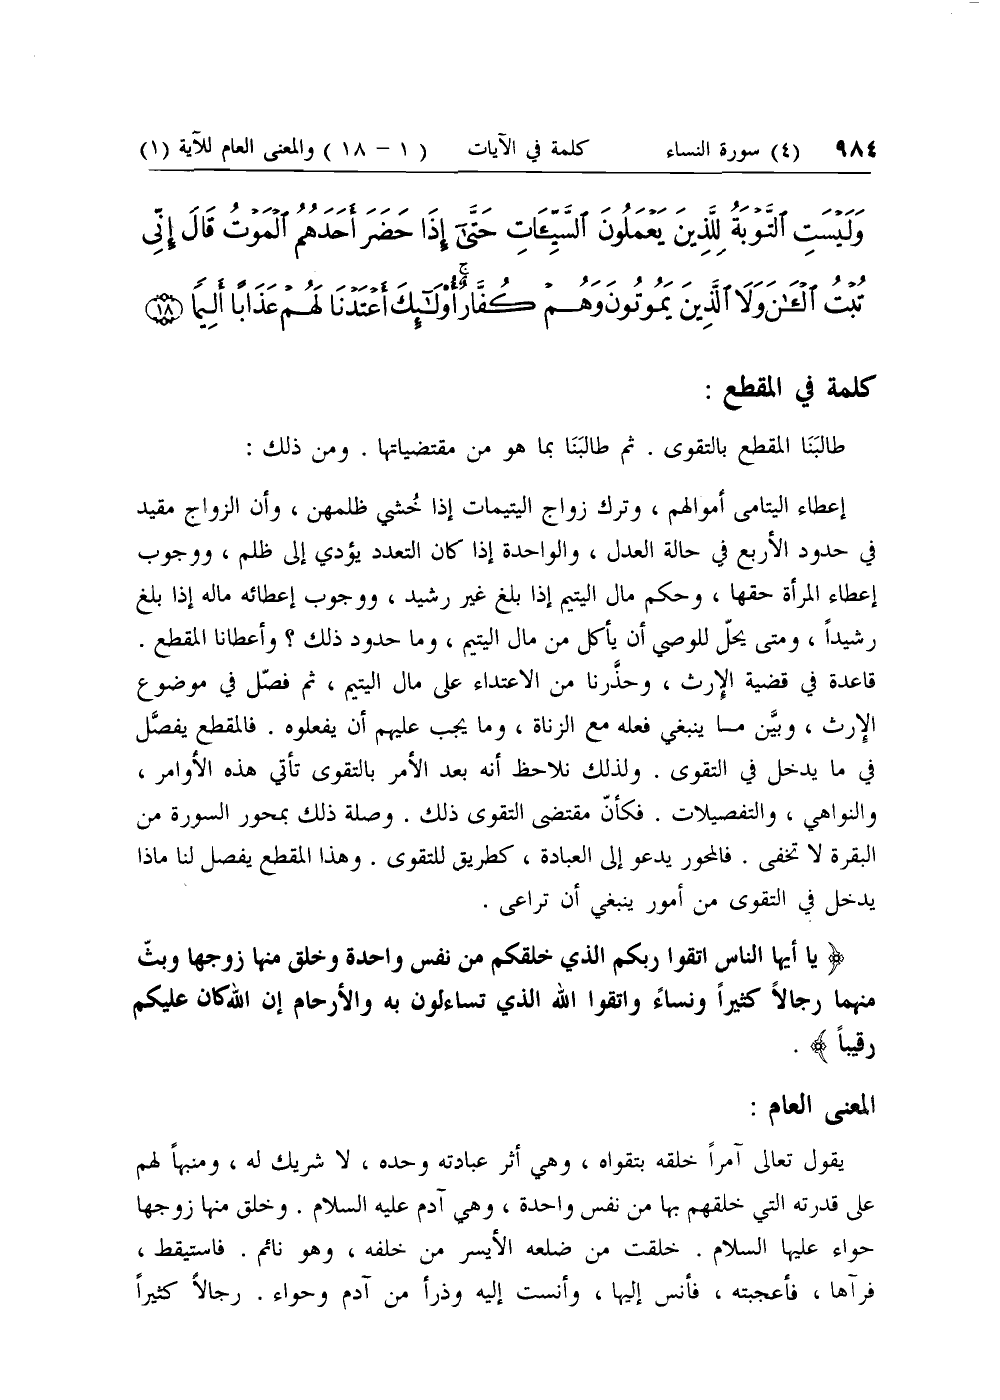 ٩٨٤ (٤) سورة النساء كلمة في الآيات ( ١ – ١٨ ) والمعنى العام للآية (١)
وَلَيْسَتِ ٱلتَّوْبَةُ لِلَّذِينَ يَعْمَلُونَ ٱلسَّيِّـَٔاتِ حَتَّىٰٓ إِذَا حَضَرَ أَحَدَهُمُ ٱلْمَوْتُ قَالَ إِنِّى
تُبْتُ ٱلْـَٰٔنَ وَلَا ٱلَّذِينَ يَمُوتُونَ وَهُمْ كُفَّارٌ ۚ أُو۟لَـٰٓئِكَ أَعْتَدْنَا لَهُمْ عَذَابًا أَلِيمًا ﴿١٨﴾
كلمة في المقطع :
طالبَنَا المقطع بالتقوى . ثم طالبَنَا بما هو من مقتضياتها . ومن ذلك :
إعطاء اليتامى أموالهم ، وترك زواج اليتيمات إذا خُشي ظلمهن ، وأن الزواج مقيد
في حدود الأربع في حالة العدل ، والواحدة إذا كان التعدد يؤدي إلى ظلم ، ووجوب
إعطاء المرأة حقها ، وحكم مال اليتيم إذا بلغ غير رشيد ، ووجوب إعطائه ماله إذا بلغ
رشيداً ، ومتى يحلّ للوصي أن يأكل من مال اليتيم ، وما حدود ذلك ؟ وأعطانا المقطع .
قاعدة في قضية الإرث ، وحذَّرنا من الاعتداء على مال اليتيم ، ثم فصّل في موضوع
الإرث ، وبيَّن مـا ينبغي فعله مع الزناة ، وما يجب عليهم أن يفعلوه . فالمقطع يفصَّل
في ما يدخل في التقوى . ولذلك نلاحظ أنه بعد الأمر بالتقوى تأتي هذه الأوامر ،
والنواهي ، والتفصيلات . فكأنّ مقتضى التقوى ذلك . وصلة ذلك بمحور السورة من
البقرة لا تخفى . فالمحور يدعو إلى العبادة ، كطريق للتقوى . وهذا المقطع يفصل لنا ماذا
يدخل في التقوى من أمور ينبغي أن تراعى .
﴿ يا أيها الناس اتقوا ربكم الذي خلقكم من نفس واحدة وخلق منها زوجها وبثّ
منهما رجالاً كثيراً ونساءً واتقوا الله الذي تساءلون به والأرحام إن الله كان عليكم
رقيباً ﴾ .
المعنى العام :
يقول تعالى آمراً خلقه بتقواه ، وهي أثر عبادته وحده ، لا شريك له ، ومنبهاً لهم
على قدرته التي خلقهم بها من نفس واحدة ، وهي آدم عليه السلام . وخلق منها زوجها
حواء عليها السلام . خلقت من ضلعه الأيسر من خلفه ، وهو نائم . فاستيقط ،
فرآها ، فأعجبته ، فأنس إليها ، وأنست إليه وذرأ من آدم وحواء . رجالاً كثيراً